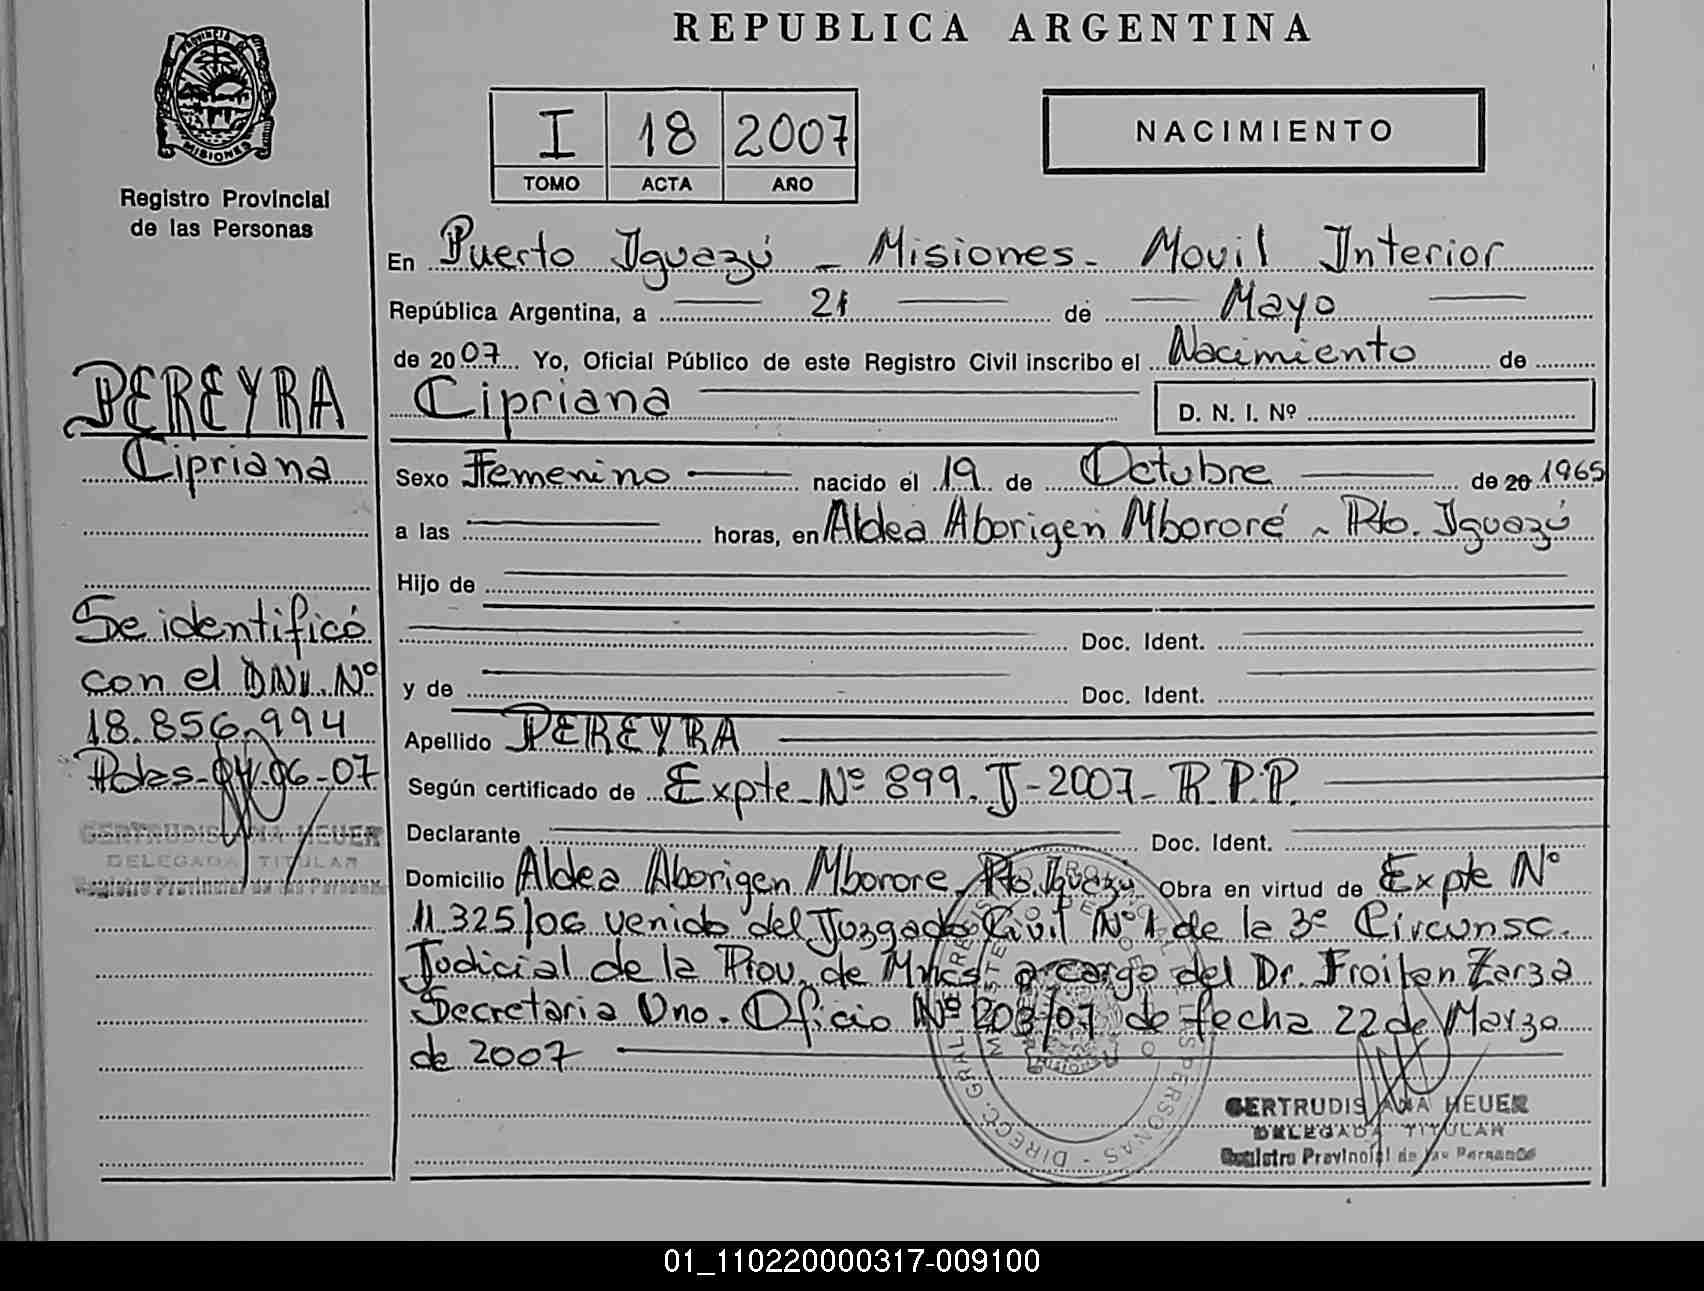 REPUBLICA ARGENTINA
Provincia de
MISIONES
Registro Provincial
de las Personas
I 18 2007
TOMO ACTA AÑO
NACIMIENTO
En Puerto Iguazú - Misiones - Movil Interior
República Argentina, a 21 de Mayo
de 2007 Yo, Oficial Público de este Registro Civil inscribo el Nacimiento de
Cipriana D. N. I. Nº
PEREYRA
Cipriana
Sexo Femenino nacido el 19 de Octubre de 20 1965
a las horas, en Aldea Aborigen Mbororé ~ Pto. Iguazú
Hijo de
Doc. Ident.
y de Doc. Ident.
Se identificó
con el DNI. Nº
18.856.994
Pdas-04-06-07
GERTRUDIS ANA HEUER
DELEGADA TITULAR
Registro Provincial de las Personas
Apellido PEREYRA
Según certificado de Expte Nº 899. J-2007- R.P.P.
Declarante Doc. Ident.
Domicilio Aldea Aborigen Mborore, Pto. Iguazu Obra en virtud de Expte Nº
11.325/06 venido del Juzgado Civil Nº1 de la 3ª Circunsc.
Judicial de la Prov. de Mnes a cargo del Dr. Froilan Zarza
Secretaria Uno. Oficio Nº 203/07 de fecha 22 de Marzo
de 2007
GERTRUDIS ANA HEUER
DELEGADA TITULAR
Registro Provincial de las Personas
01_110220000317-009100